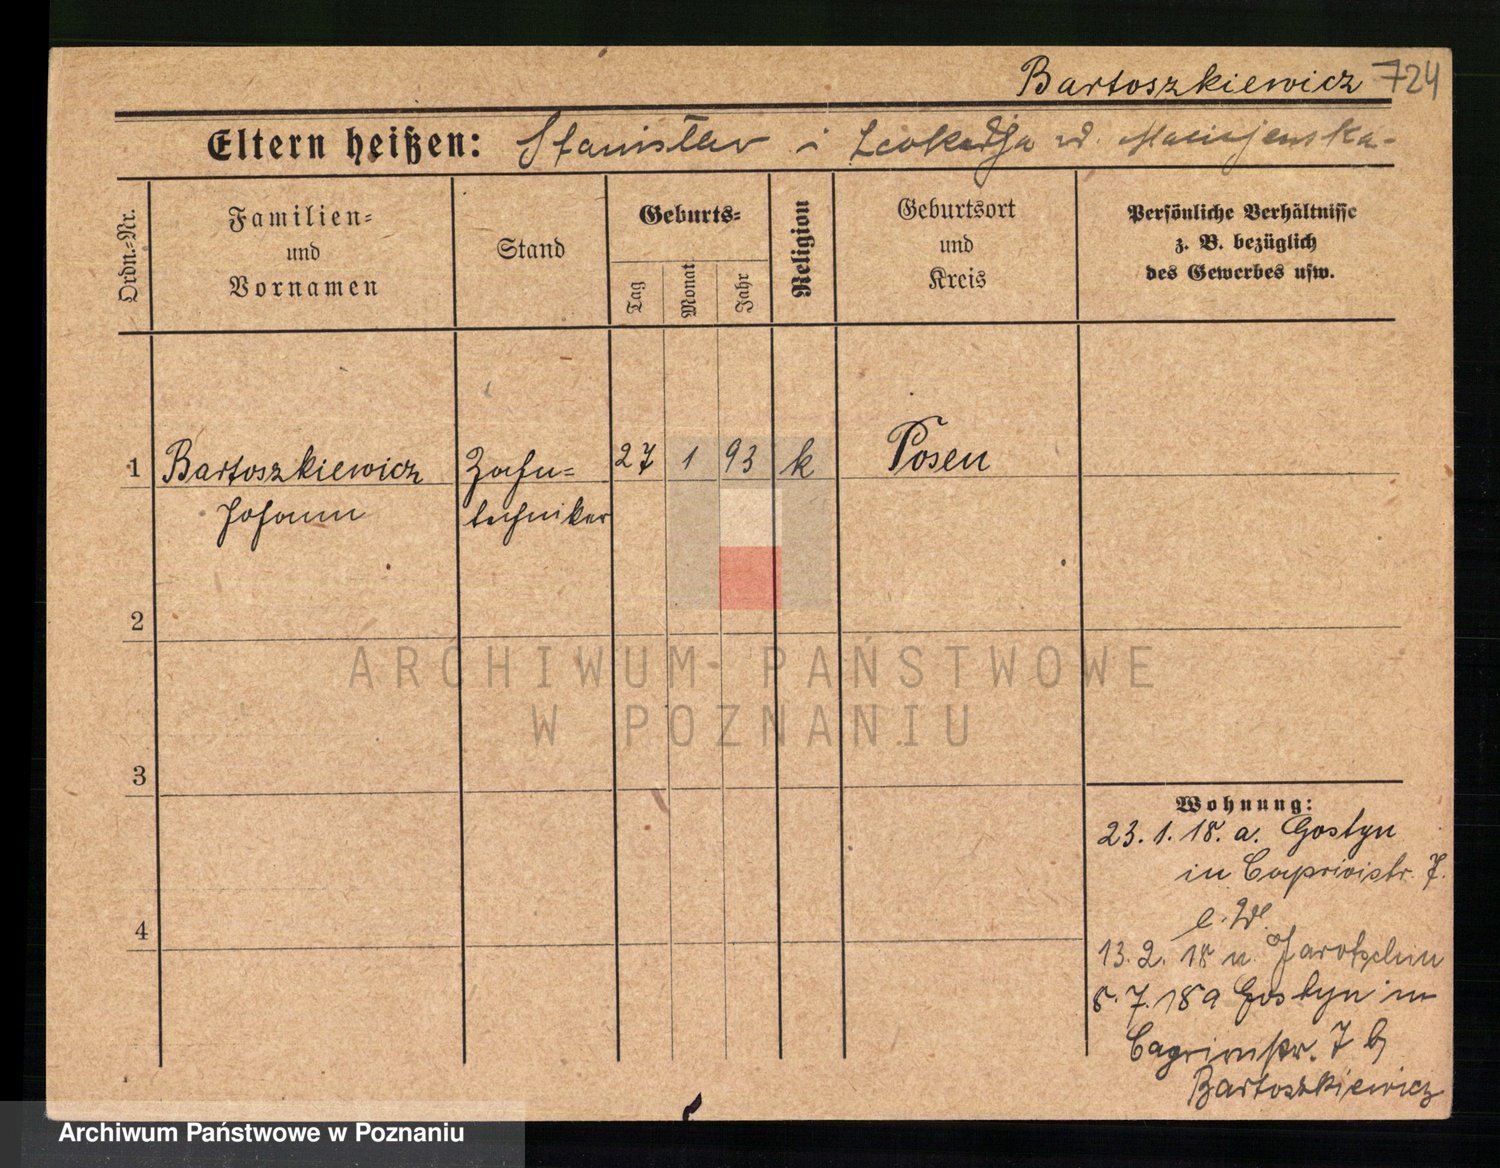 Bartoszkiewicz 724
Eltern heißen: Stanisław i Leokadja
Ordn.=Nr.
Familien=
und
Vornamen
Stand
Geburts=
Tag
Monat
Jahr
Religion
Geburtsort
und
Kreis
Persönliche Verhältnisse
z. B. bezüglich
des Gewerbes usw.
1 Bartoszkiewicz Zahn= 27 1 93 k Posen
Johann techniker
2
3
4
ARCHIWUM PAŃSTWOWE
W POZNANIU
Wohnung:
23. 1. 18. a. Gostyn
in Caprivistr. 7.
13. 2. 18 n. Jarotschin
8. 7. 18 a Gostyn in
Caprivistr. 7 b
Bartoszkiewicz
Archiwum Państwowe w Poznaniu